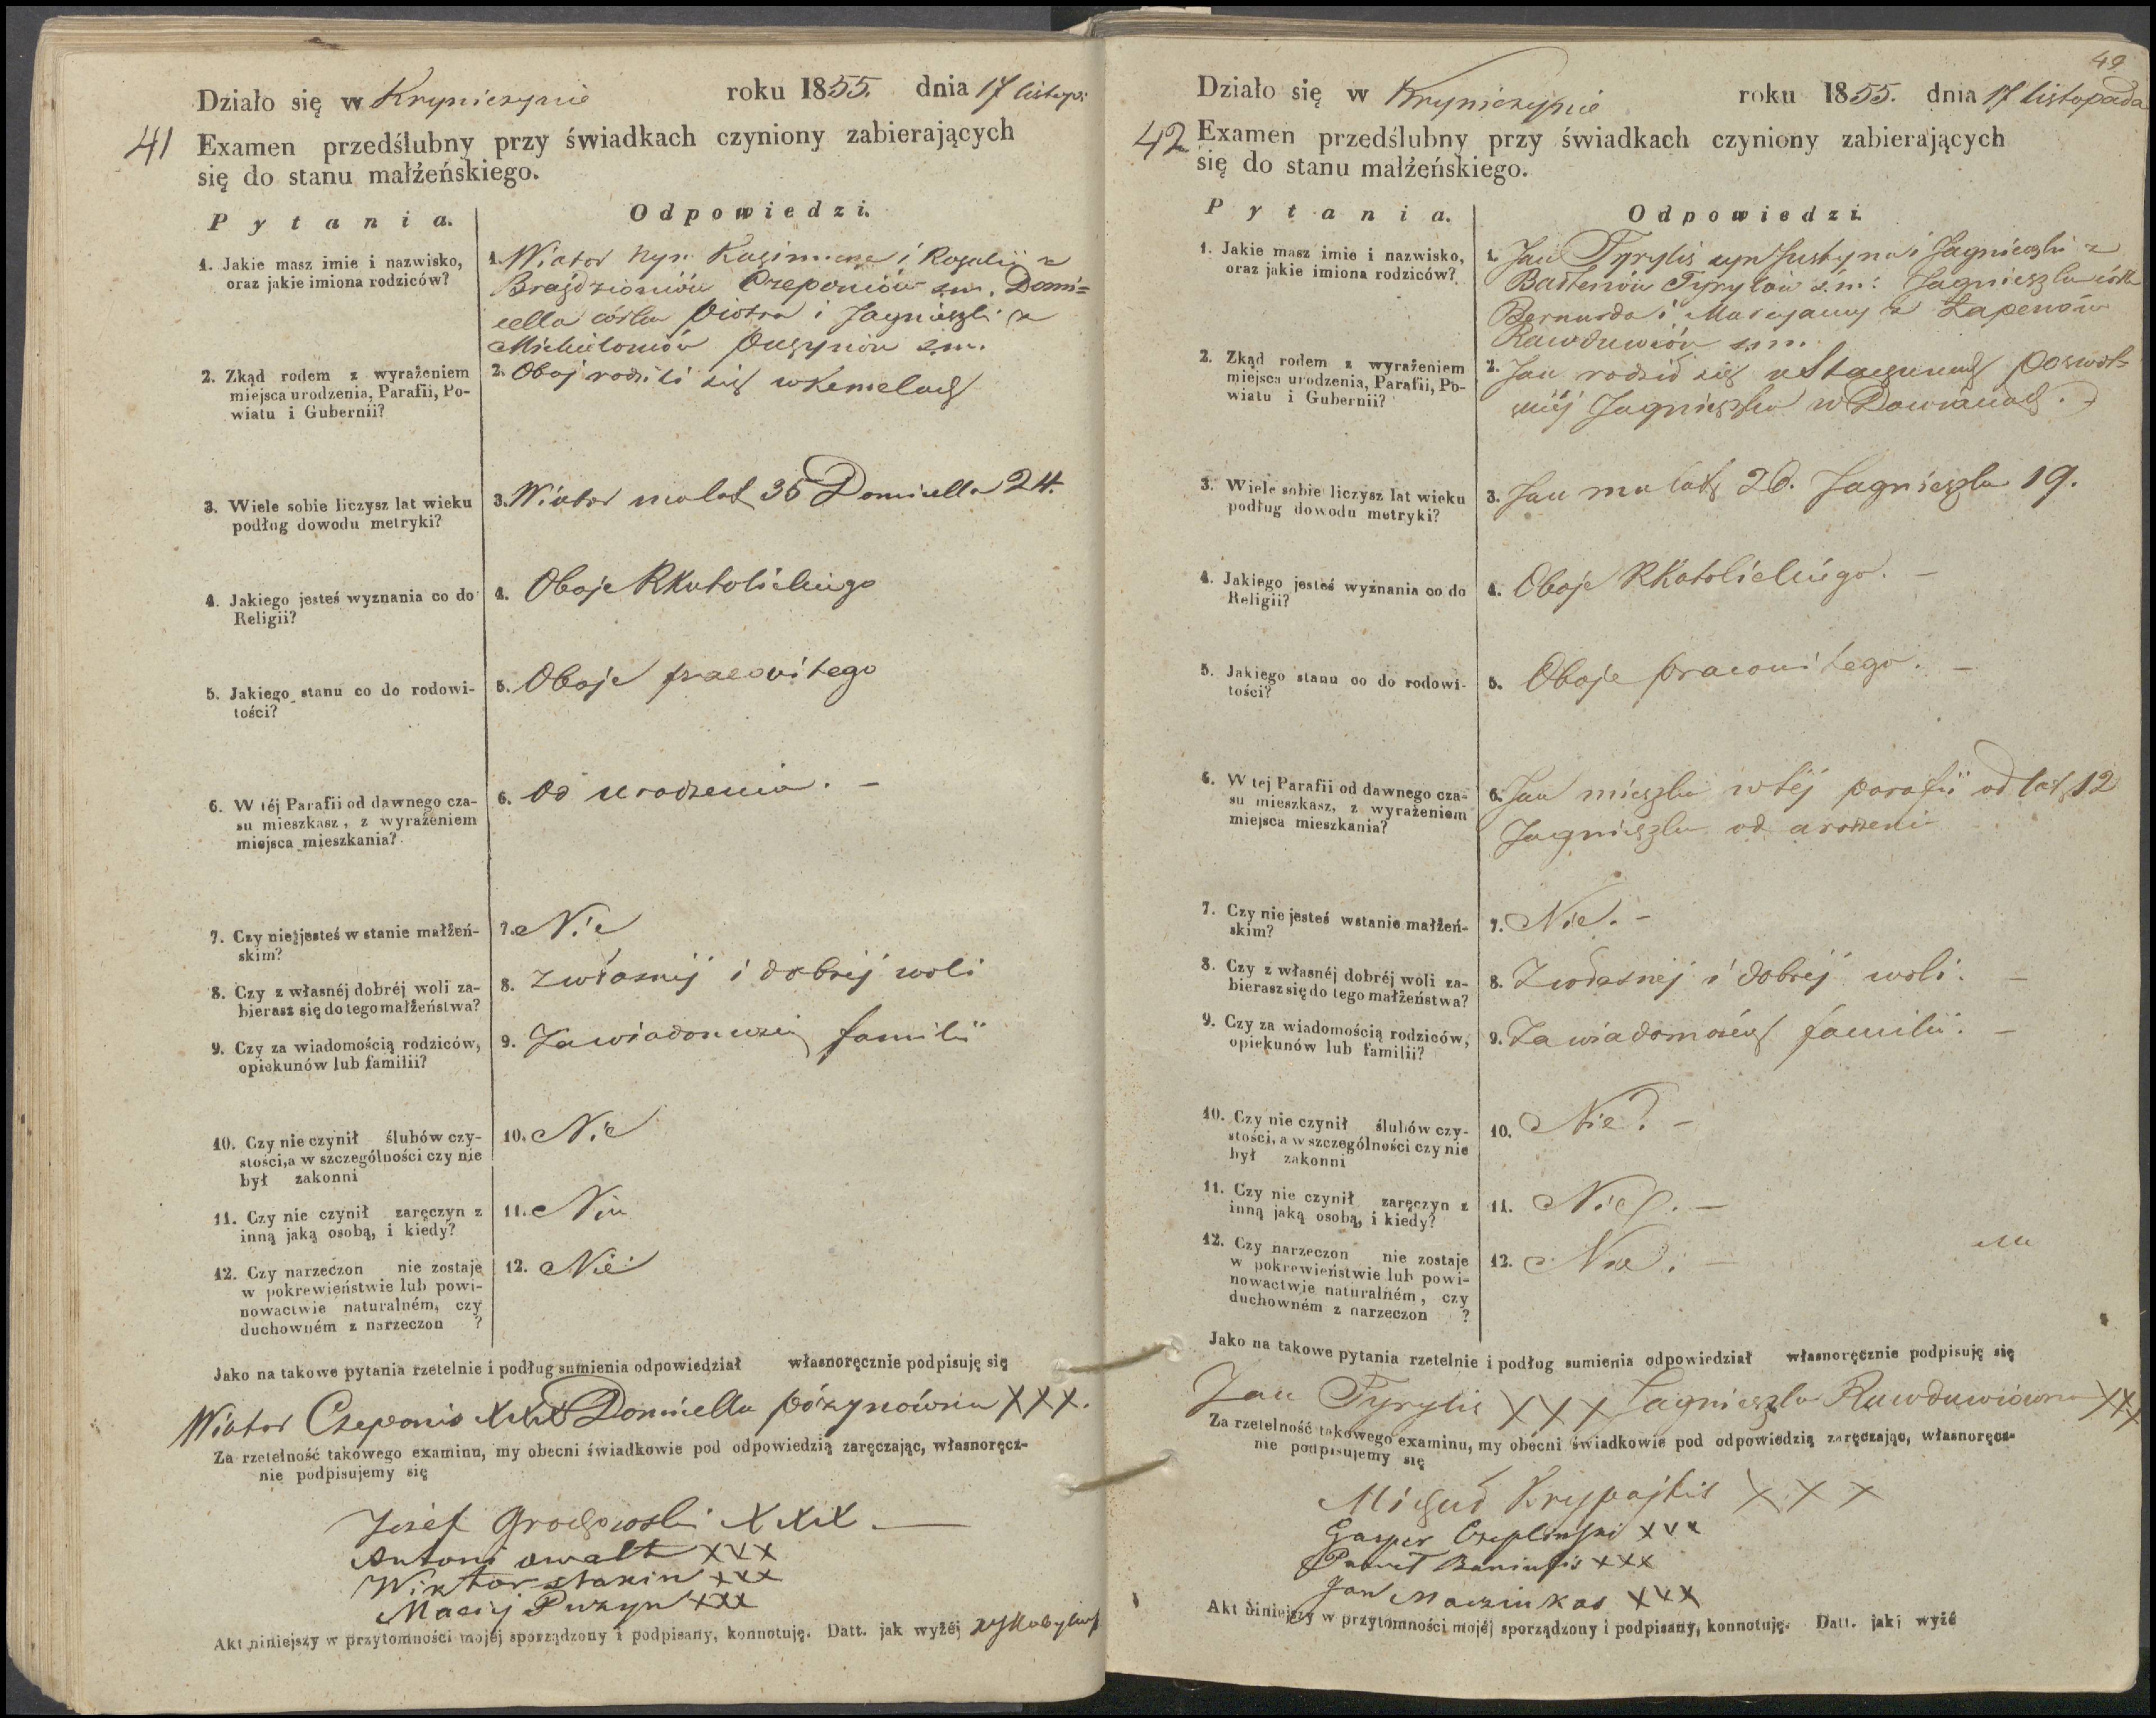 Działo się w Krypiczynie roku 1855. dnia 17 listop:
41 Examen przedślubny przy świadkach czyniony zabierających
się do stanu małżeńskiego.
Pytania. Odpowiedzi.
1. Jakie masz imie i nazwisko,
oraz jakie imiona rodziców?
1. Wiator syn Kazimierza i Rozalii z
Brażdzioniów Czeponiów s.m. Domi=
cella córka Piotra i Jagnieszki z
Michielomów Puzynów s.m.
2. Zkąd rodem z wyrażeniem
miejsca urodzenia, Parafii, Po-
wiatu i Gubernii?
2. Oboj rodzili się w Kemelach
3. Wiele sobie liczysz lat wieku
podług dowodu metryki?
3. Wiator ma lat 35 Domicella 24.
4. Jakiego jesteś wyznania co do
Religii?
4. Oboje RKatolickiego
5. Jakiego stanu co do rodowi-
tości?
5. Oboje pracovitego
6. W téj Parafii od dawnego cza-
su mieszkasz, z wyrażeniem
miejsca mieszkania?
6. Od urodzenia. –
7. Czy nie jesteś w stanie małżeń-
skim?
7. Nie
8. Czy z własnéj dobréj woli za-
bierasz się do tego małżeństwa?
8. z własnéj i dobréj woli
9. Czy za wiadomością rodziców,
opiekunów lub familii?
9. Za wiadomością familii
10. Czy nie czynił ślubów czy-
stości, a w szczególności czy nie
był zakonni
10. Nie
11. Czy nie czynił zaręczyn z
inną jaką osobą, i kiedy?
11. Nie
12. Czy narzeczon nie zostaje
w pokrewieństwie lub powi-
nowactwie naturalném, czy
duchowném z narzeczon ?
12. Nie
Jako na takowe pytania rzetelnie i podług sumienia odpowiedział własnoręcznie podpisuję się
Wiator Czeponis XXX Domicella Pózynówna XXX.
Za rzetelność takowego examinu, my obecni świadkowie pod odpowiedzią zaręczając, własnoręcz-
nie podpisujemy się
Jozef Grochowski XXX —
Antoni Awalt XXX
Wiktor Stakin XXX
Maciej Puzyn XXX
Akt niniejszy w przytomności mojéj sporządzony i podpisany, konnotuję. Datt. jak wyżéj
49
Działo się w Krypiczynie roku 1855. dnia 17 listopada
42 Examen przedślubny przy świadkach czyniony zabierających
się do stanu małżeńskiego.
Pytania. Odpowiedzi.
1. Jakie masz imie i nazwisko,
oraz jakie imiona rodziców?
1. Jan Tyrylis syn Justyna i Jagnieszki z
Tyrylów s.m: Jagnieszka córka
Bernarda i Maryanny z Łapenów
Rawduwiów s.m.
2. Zkąd rodem z wyrażeniem
miejsca urodzenia, Parafii, Po-
wiatu i Gubernii?
2. Jan rodził się
Jagnieszka w
3. Wiele sobie liczysz lat wieku
podług dowodu metryki?
3. Jan ma lat 26. Jagnieszka 19.
4. Jakiego jesteś wyznania co do
Religii?
4. Oboje RKatolickiego. –
5. Jakiego stanu co do rodowi-
tości?
5. Oboje pracowitego. –
6. W tej Parafii od dawnego cza-
su mieszkasz, z wyrażeniem
miejsca mieszkania?
6. Jan mieszka w téj parafii od lat 12
Jagnieszka od urodzeni
7. Czy nie jesteś w stanie małżeń-
skim?
7. Nie. –
8. Czy z własnéj dobréj woli za-
bierasz się do tego małżeństwa?
8. Z własnéj i dobréj woli. –
9. Czy za wiadomością rodziców,
opiekunów lub familii?
9. Za wiadomością familii. –
10. Czy nie czynił ślubów czy-
stości, a w szczególności czy nie
był zakonni
10. Nie. –
11. Czy nie czynił zaręczyn z
inną jaką osobą, i kiedy?
11. Nie. –
12. Czy narzeczon nie zostaje
w pokrewieństwie lub powi-
nowactwie naturalném, czy
duchowném z narzeczon ?
12. Nie. –
Jako na takowe pytania rzetelnie i podług sumienia odpowiedział własnoręcznie podpisuję się
Jan Tyrylis XXX Jagnieszka Rawduwiówna XXX
Za rzetelność takowego examinu, my obecni świadkowie pod odpowiedzią zaręczając, własnoręcz-
nie podpisujemy się
Michał Krypajtis XXX
Gasper Czeplinski XXX
Paweł XXX
Jan Maczinkas XXX
Akt niniejszy w przytomności mojéj sporządzony i podpisany, konnotuję. Datt. jak wyżé